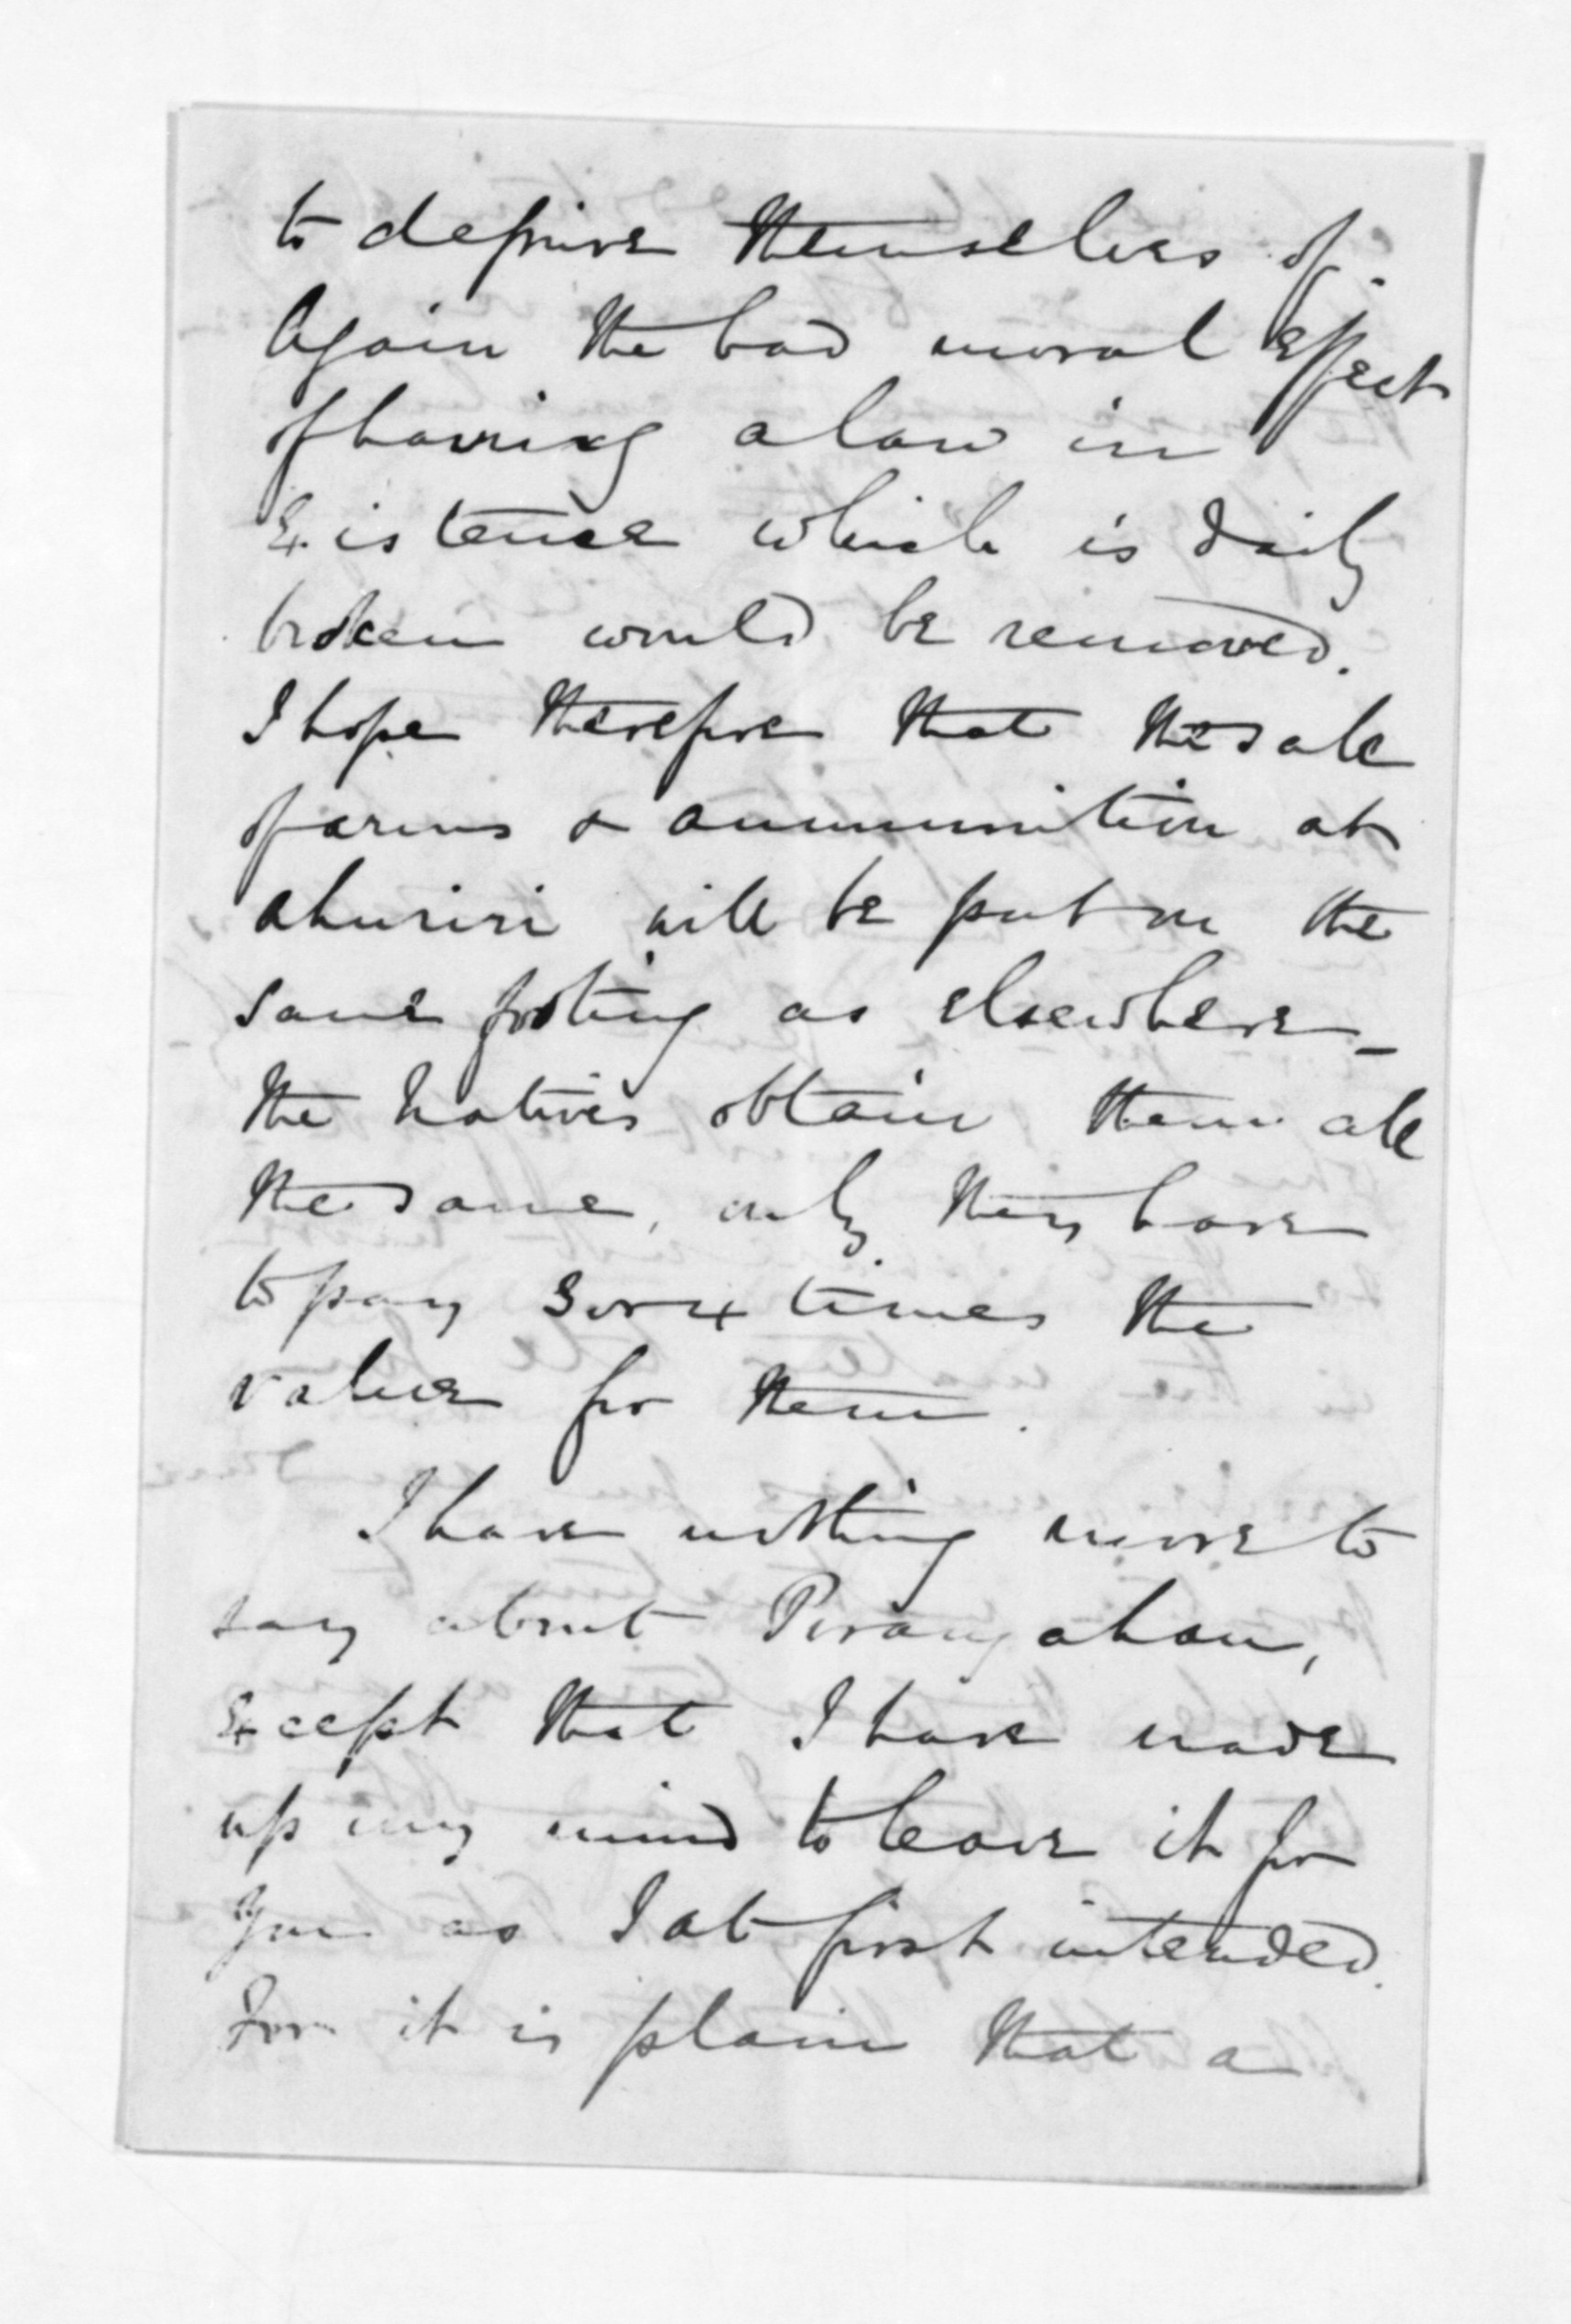 to deprive themselves of.
Again the bad moral effect
of having a law in
Existence which is daily
broken would be removed.
I hope therefore that the sale
of arms & ammunition at
Ahuriri will be put on the
same footing as elsewhere_
The Natives obtain them all
the same, only they have
to pay 3 or 4 times the
value for them.
I have nothing more to
say about Porangahau,
Except that I have made
up my mind to leave it for
you as I at first intended.
For it is plain that a